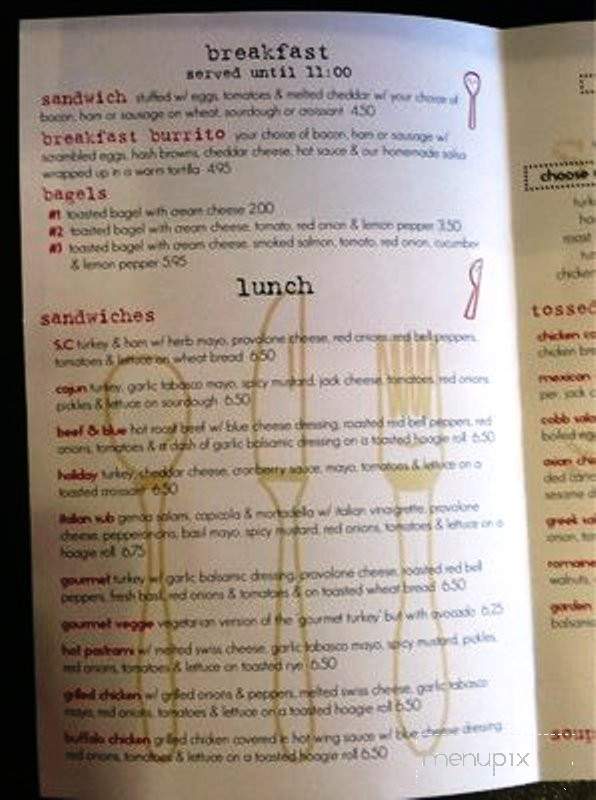 breakfast
served until 11:00
sandwich stuffed w/ eggs, tomatoes & melted cheddar w/ your choice of
bacon, ham or sausage on wheat, sourdough or croissant 4.50
breakfast burrito your choice of bacon, ham or sausage w/
scrambled eggs, hash browns, cheddar cheese, hot sauce & our homemade salsa
wrapped up in a warm tortilla 4.95
bagels
#1 toasted bagel with cream cheese 2.00
#2 toasted bagel with cream cheese, tomato, red onion & lemon pepper 3.50
#3 toasted bagel with cream cheese, smoked salmon, tomato, red onion, cucumber
& lemon pepper 5.95
lunch
sandwiches
S.C turkey & ham w/ herb mayo, provolone cheese, red onions, red bell peppers,
tomatoes & lettuce on wheat bread 6.50
cajun turkey, garlic tabasco mayo, spicy mustard, jack cheese, tomatoes, red onions,
pickles & lettuce on sourdough 6.50
beef & blue hot roast beef w/ blue cheese dressing, roasted red bell peppers, red
onions, tomatoes & a dash of garlic balsamic dressing on a toasted hoagie roll 6.50
holiday turkey, cheddar cheese, cranberry sauce, mayo, tomatoes & lettuce on a
toasted croissant 6.50
italian sub genoa salami, capicola & mortadella w/ italian vinaigrette, provolone
cheese, pepperoncinis, basil mayo, spicy mustard, red onions, tomatoes & lettuce on a
hoagie roll 6.75
gourmet turkey w/ garlic balsamic dressing, provolone cheese, roasted red bell
peppers, fresh basil, red onions & tomatoes & on toasted wheat bread 6.50
gourmet veggie vegetarian version of the 'gourmet turkey' but with avocado 6.25
hot pastrami w/ melted swiss cheese, garlic tabasco mayo, spicy mustard, pickles,
red onions, tomatoes & lettuce on toasted rye 6.50
grilled chicken w/ grilled onions & peppers, melted swiss cheese, garlic tabasco
mayo, red onions, tomatoes & lettuce on a toasted hoagie roll 6.50
buffalo chicken grilled chicken covered in hot wing sauce w/ blue cheese dressing,
red onions, tomatoes & lettuce on a toasted hoagie roll 6.50
choose
roast
chicken
tossed
chicken
chicken
mexican
cobb
boiled
asian
sesame
greek
onion
romaine
walnuts
garden
balsamic
soup
menupix